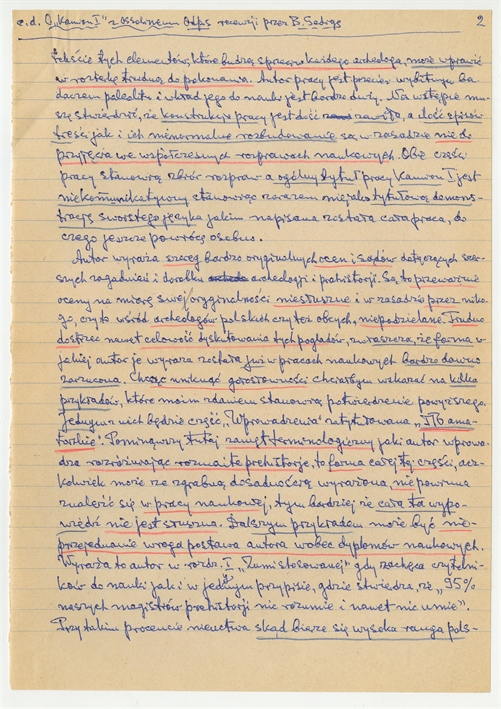 c.d. O „Kanon I" z Ossolineum Odps recenzji przez B. Sadigs 2
tekście tych elementów, które budzą sprzeciw każdego archeologa, może wprawić
w rozterkę trudną do pokonania. Autor pracy jest przecież wybitnym ba-
daczem paleolitu i wkład jego do nauki jest bardzo duży. Na wstępie mu-
szę stwierdzić, że konstrukcja pracy jest dość zawiła, a ilość spisów
treści jak i ich nienormalne rozbudowanie są w zasadzie nie do
przyjęcia we współczesnych rozprawach naukowych. Obie części
pracy stanowią zbiór rozpraw a ogólny tytuł pracy Kanon I jest
niekomunikatywny stanowiąc zarazem niejako tytułową demons-
trację swoistego języka jakim napisana została cała praca, do
czego jeszcze powrócę osobno.
Autor wyraża szereg bardzo oryginalnych ocen i sądów dotyczących szer-
szych zagadnień i dorobku archeologji i prahistorji. Są, to przeważnie
oceny na miarę swej oryginalności niesłuszne i w zasadzie przez niko-
go, czy to wśród archeologów polskich czy też obcych, niepodzielane. Trudno
dostrzec nawet celowość dyskutowania tych poglądów, zwłaszcza, że forma w
jakiej autor je wyraża została już w pracach naukowych bardzo dawno
zarzucona. Chcąc uniknąć gołosłowności chciałbym wskazać na kilka
przykładów, które moim zdaniem stanowią potwierdzenie powyższego.
Jednym z nich będzie część „Wprowadzenia" zatytułowana „Tło ama-
torskie". Pominąwszy tutaj zamęt terminologiczny jaki autor wprowa-
dza rozróżniając rozmaite prehistorje, to forma całej tej części, acz-
kolwiek może ze zgrabną dosadnością wyrażona, nie powinna
znaleźć się w pracy naukowej, tym bardziej że cała ta wypo-
wiedź nie jest słuszna. Dalszym przykładem może być nie-
przejednanie wroga postawa autora wobec dyplomów naukowych.
Wyraża to autor w rozdz. I „Zumistosowanej" gdy zachęca czytelni-
ków do nauki jak i w jednym przypisie, gdzie stwierdza, że „95%
naszych magistrów prehistorji nic rozumie i nawet nic umie".
Przy takim procencie nieuctwa skąd bierze się wysoka ranga pols-